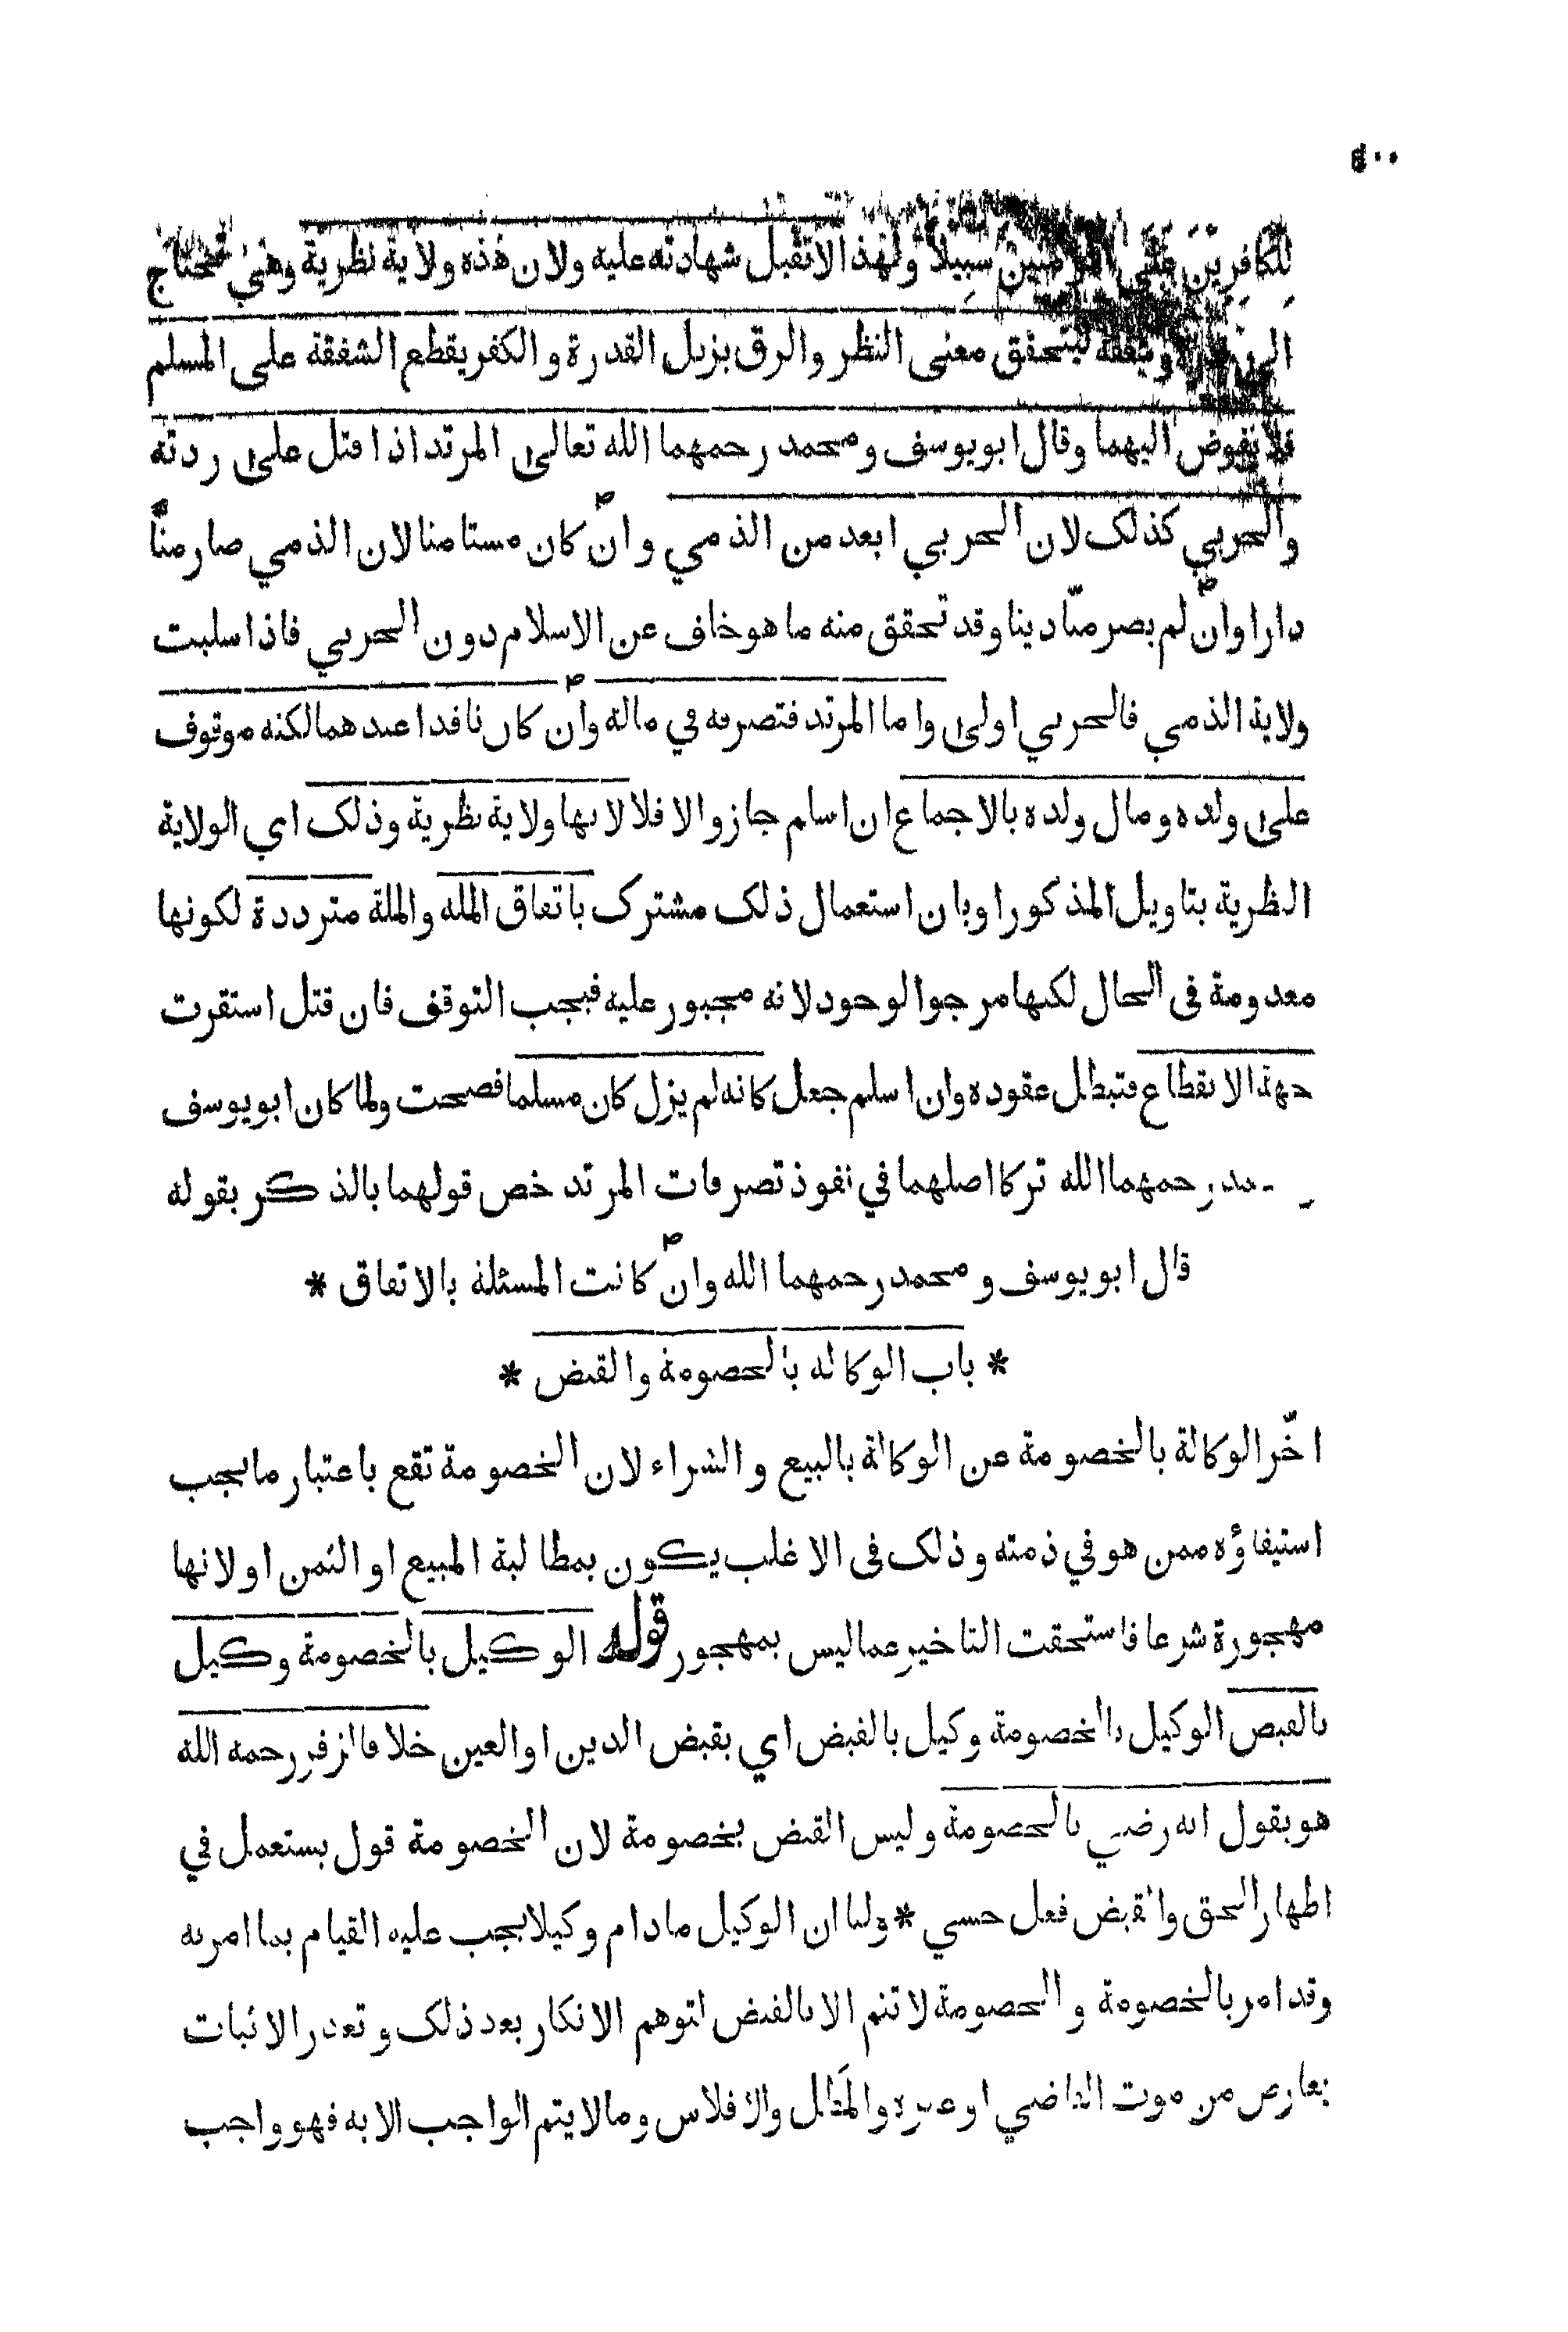 ٤٠٠
لِلْكَافِرِينَ عَلَى الْمُؤْمِنِينَ سَبِيلًا ولهذا لا تقبل شهادته عليه ولان هذه ولاية نظرية وهي تحتاج
الى وشفقة ليتحقق معنى النظر والرق يزيل القدرة والكفر يقطع الشفقة على المسلم
فلا تفوض اليهما وقال ابو يوسف ومحمد رحمهما الله تعالى المرتد اذا قتل على ردته
والحربي كذلك لان الحربي ابعد من الذمي وان كان مستامنا لان الذمي صار منّا
دارا وان لم يصر منّا دينا وقد تحقق منه ما هو خلف عن الاسلام دون الحربي فاذا سلبت
ولاية الذمي فالحربي اولى واما المرتد فتصرفه في ماله وان كان نافذا عندهما لكنه موقوف
على ولده ومال ولده بالاجماع ان اسلم جاز والا فلا لانها ولاية نظرية وذلك اي الولاية
النظرية بتاويل المذكور او بان استعمال ذلك مشترك باتفاق الملة والملة مترددة لكونها
معدومة في الحال لكنها مرجوا الوجود لانه مجبور عليه فيجب التوقف فان قتل استقرت
جهة الانقطاع فتبطل عقوده وان اسلم جعل كانه لم يزل كان مسلما فصحت ولما كان ابو يوسف
ومحمد رحمهما الله تركا اصلهما في نفوذ تصرفات المرتد خص قولهما بالذكر بقوله
قال ابو يوسف ومحمد رحمهما الله وان كانت المسئلة بالاتفاق *
* باب الوكالة بالخصومة والقبض *
اخّر الوكالة بالخصومة عن الوكالة بالبيع والشراء لان الخصومة تقع باعتبار ما يجب
استيفاؤه ممن هو في ذمته وذلك في الاغلب يكون بمطالبة المبيع او الثمن او لانها
مهجورة شرعا فاستحقت التاخير عما ليس بمهجور قوله الوكيل بالخصومة وكيل
بالقبض الوكيل بالخصومة وكيل بالقبض اي بقبض الدين او العين خلافا لزفر رحمه الله
هو يقول انه رضي بالخصومة وليس القبض بخصومة لان الخصومة قول يستعمل في
اظهار الحق والقبض فعل حسي * ولنا ان الوكيل مادام وكيلا يجب عليه القيام بما امر به
وقد امر بالخصومة والخصومة لا تتم الا بالقبض لتوهم الانكار بعد ذلك وتعذر الاثبات
بعارض من موت القاضي او غيره والمطل والافلاس وما لا يتم الواجب الا به فهو واجب